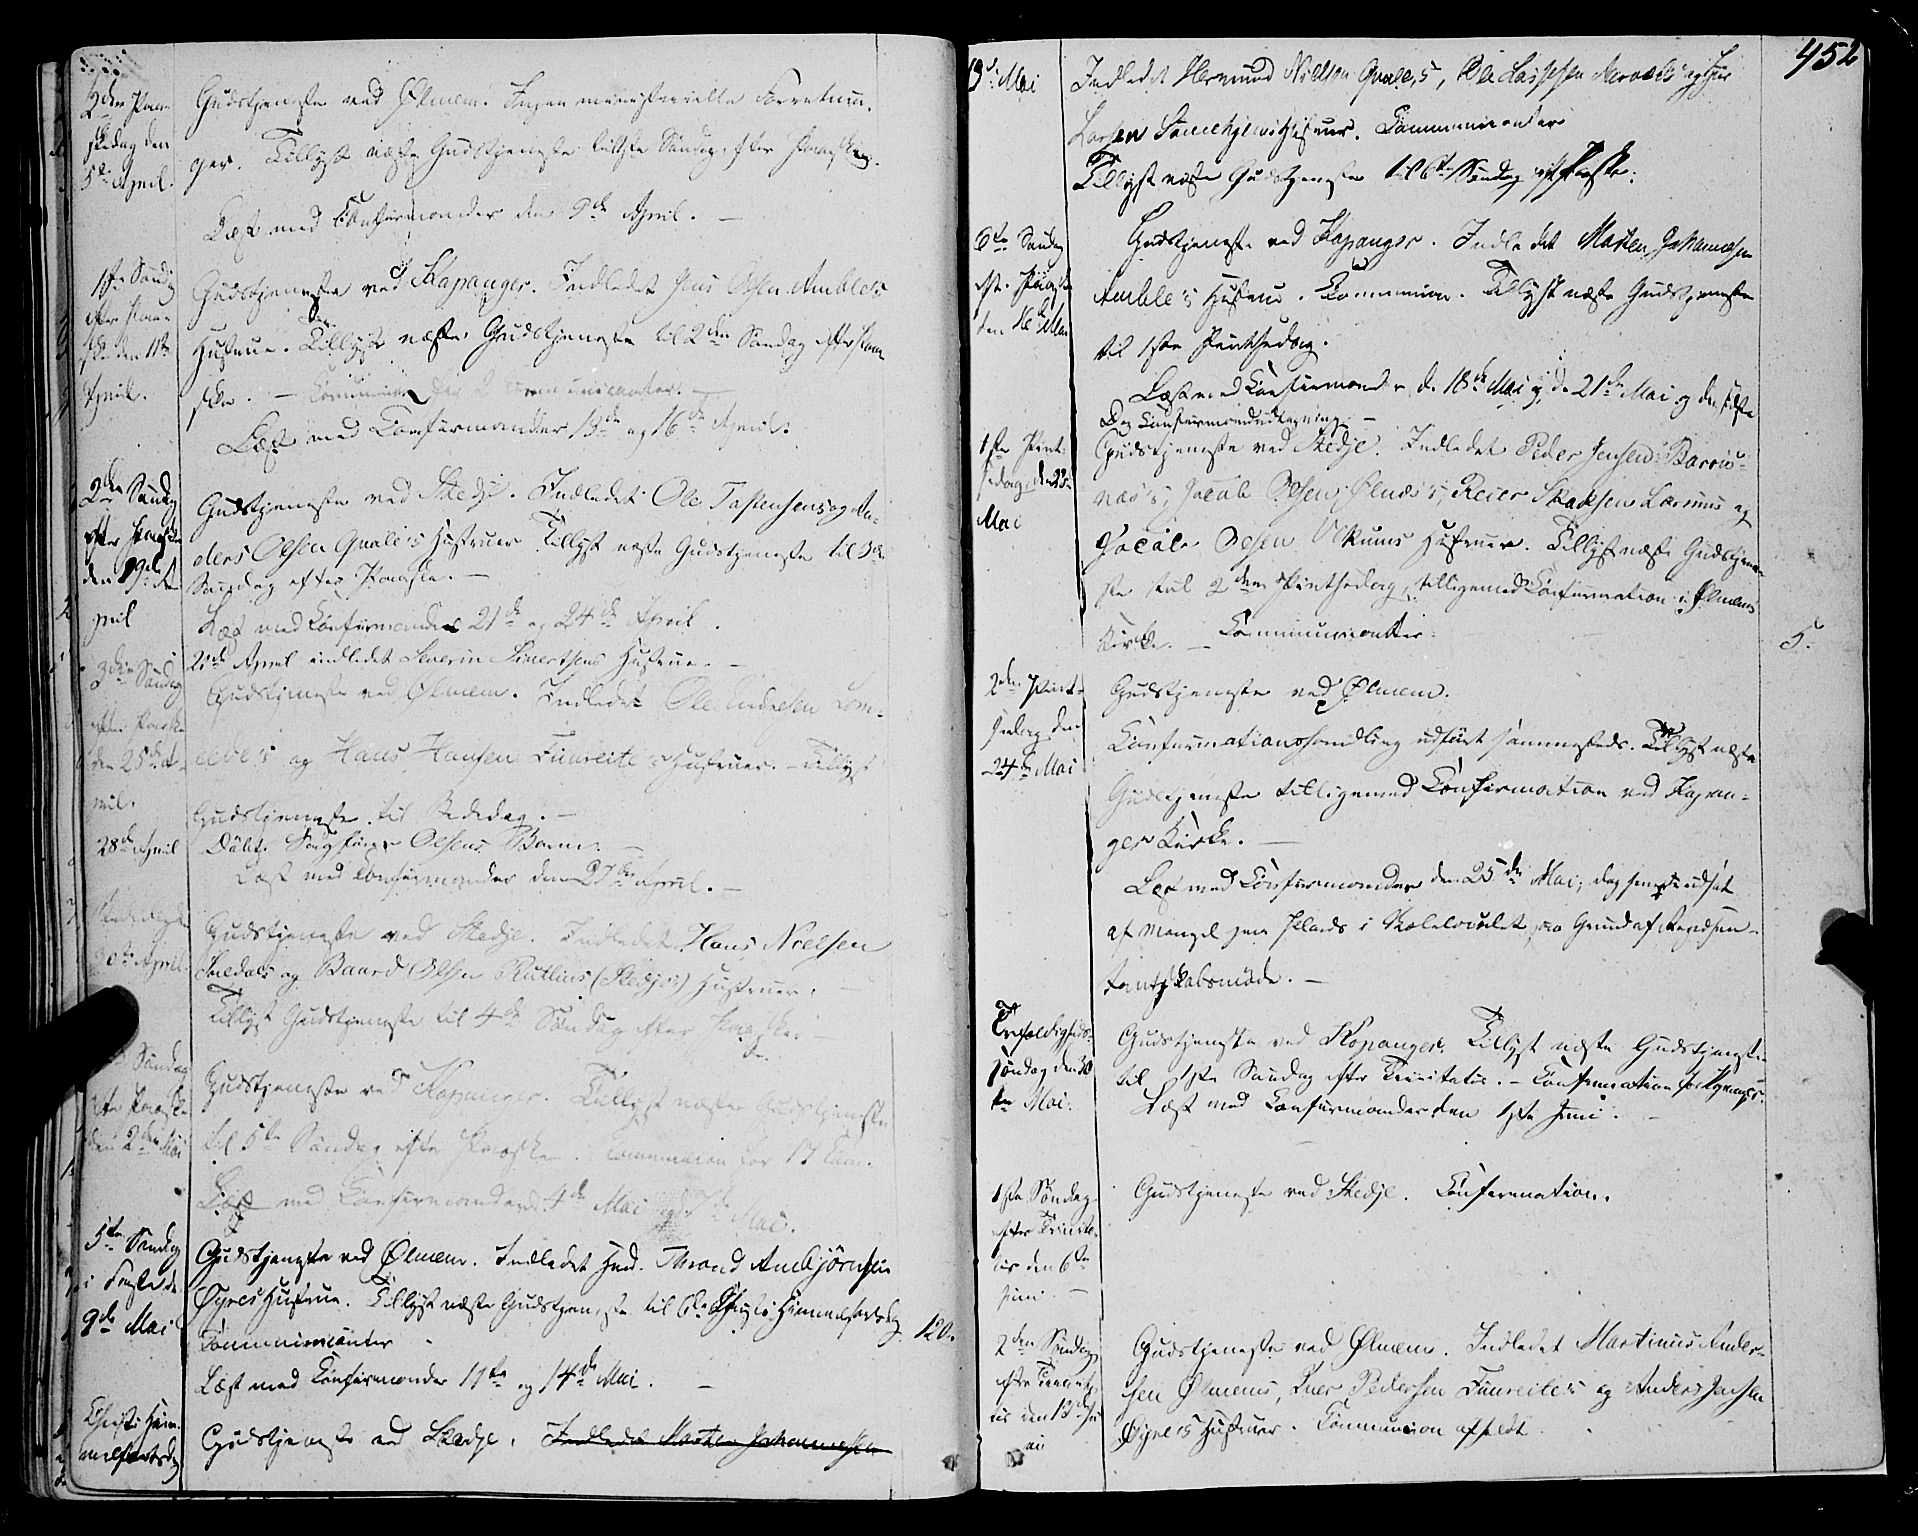 2den Paa-
skedag den
5te April.
Gudstjeneste ved Ølmem. Ingen ministerielle Forretnin-
ger. Tillyst næste Gudstjeneste første Søndag efter Paasken.
Læst med Confirmander den 9de April. —
1ste Søndag
efter Paa-
ske den 11te
April.
Gudstjeneste ved Kapanger. Indledet Jens Olsen Ambles
Hustrue. Tillyst næste Gudstjeneste til 2den Søndag efter Paa-
ske. — Communion for 2 Communicanter. —
Læst med Confirmander 13de og 16de April.
2den Søndag
efter Paaske
den 19de A-
pril
Gudstjeneste ved Stedje. Indledet Ole Tostensens og An-
ders Olsen Quale's Hustruer. Tillyst næste Gudstjeneste til 3die
Søndag efter Paaske. —
Læst med Confirmander 21de og 24de April.
April indledet Severin Sivertsens Hustrue. —
3die Søndag
efter Paaske
den 25de A-
pril.
Gudstjeneste ved Ølmem. Indledet Ole Andersen Lom-
og Hans Hansen Fuureite's Hustruer. — Tillyst
Gudstjeneste til Bededag. —
28de April
Døbt Olsens Barn. —
Læst med Confirmander den 27de April. —
30te April.
Gudstjeneste ved Stedje. Indledet Hans Nielsen
og Baard Olsen Rutlins (Stedje) Hustruer. —
Tillyst Gudstjeneste til 4de Søndag efter Paaske. —
Søndag
efter Paaske
den 2den Mai
Gudstjeneste ved Kapanger. Tillyst næste Gudstjeneste
til 5te Søndag efter Paaske. Communion for 17 Com.
Læst med Confirmander 4de Mai og Mai.
5te Søndag
i Faste den
9de Mai
Gudstjeneste ved Ølmem. Indledet Trond Ambjørnsen
Øyres Hustrue. Tillyst næste Gudstjeneste til Christi Himmelfartsdag
120.
Communicanter
Læst med Confirmander 11te og 14de Mai. —
Christi Him-
melfartsdag
Gudstjeneste ved Stedje. Indledet Morten Johannesen
452
13de Mai
Indledet Hermund Nielsen Quale's, Ole Lassesen og
Larsen Hustruer. Communicanter
Tillyst næste Gudstjeneste til 6te Søndag eft. Paaske.
6te Søndag
eft. Paaske
den 16de Mai
Gudstjeneste ved Kapanger. Indledet Morten Johannesen
Amble's Hustrue. Communion. Tillyst næste Gudstjeneste
til 1ste Pintsedag.
Læst med Confirmander d. 18de Mai og d. 21de Mai og den sidste
Dag
1ste Pint-
sedag, den 23de
Mai
Gudstjeneste ved Stedje. Indledet Peder Jensen Barsnæs-
næs's, Jacob Olsen Ølnæs's, Reier Skaksen Lærums og
Jacob Olsen Ukums Hustruer. Tillyst næste Gudstjene-
ste til 2den Pintsedag, tilligemed Confirmation i Ølmems
Kirke. — Communicanter.
5.
2den Pint-
sedag den
24de Mai
Gudstjeneste ved Ølmem.
Confirmationshandling udført sammesteds. Tillyst næste
Gudstjeneste tilligemed Confirmation ved Kapan-
ger Kirke. —
Læst med Confirmander den 25de Mai, dog udsat
af Mangel paa Plads i Skolelocalet, paa Grund af Repræsen-
tantskabsmøde. —
Trefoldigheds-
søndag den 30
te Mai.
Gudstjeneste ved Kapanger. Tillyst næste Gudstjeneste
til 1ste Søndag efter Trinitatis. — Confirmation for Kapanger.
Læst med Confirmander den 1ste Juni. —
1ste Søndag
efter Trinita-
tis den 6te
Juni. —
Gudstjeneste ved Stedje. Confirmation.
2den Søndag
efter Trinita-
tis den 13de Ju-
ni
Gudstjeneste ved Ølmem. Indledet Martinus Ander-
sen Ølmems, Iver Pedersen Fuureites og Anders Jensen
Øyre's Hustruer. Communion afholdt.